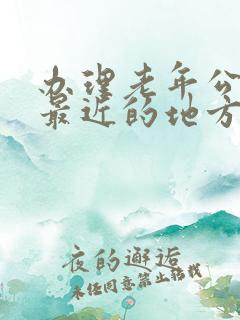 办理老年公
最近的地方
夜的邂逅
未经同意禁止转载